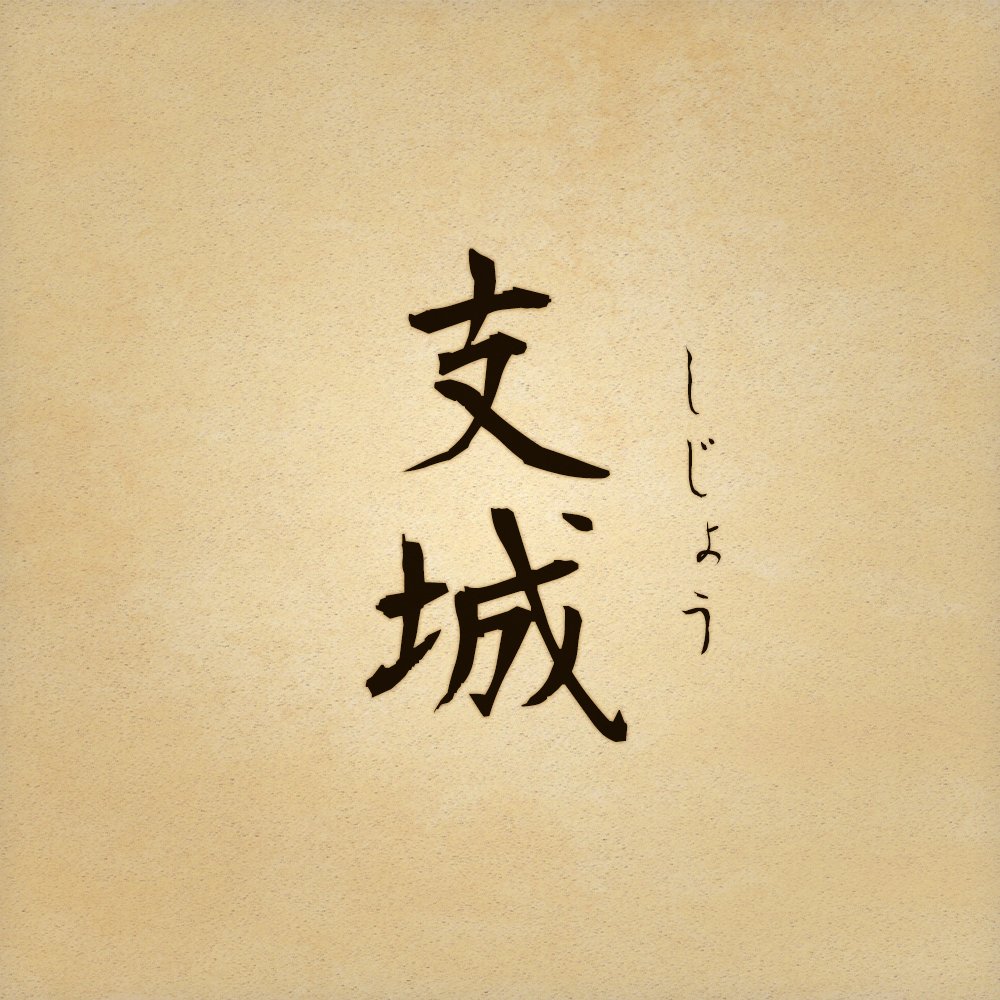 支城
しじょう